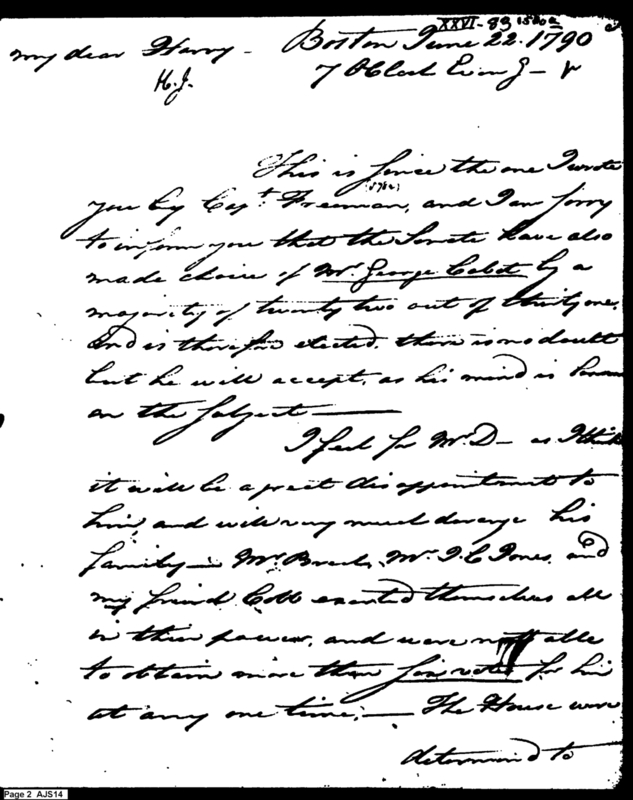 XXVI-89
Boston June 22. 1790
my dear Harry -
7 OClock Evon g -
H. J.
This is since the one I wrote
you by Cap.t Freeman, and I am sorry
to inform you that the Senate have also
made choice of Mr. George Cabot by a
majority of twenty two out of thirty one,
and is therefore elected. there is no doubt
but he will accept, as his mind is known
on the subject —
I feel for Mr. D - as I think
it will be a great disappointment to
him, and will very much derange his
family — Mr. Breck, Mr. J. C. Jones, and
my friend Cobb exerted themselves all
in their power, and were not able
to obtain more than six votes for him
at any one time; — The House were
determined to
Page 2 AJS14